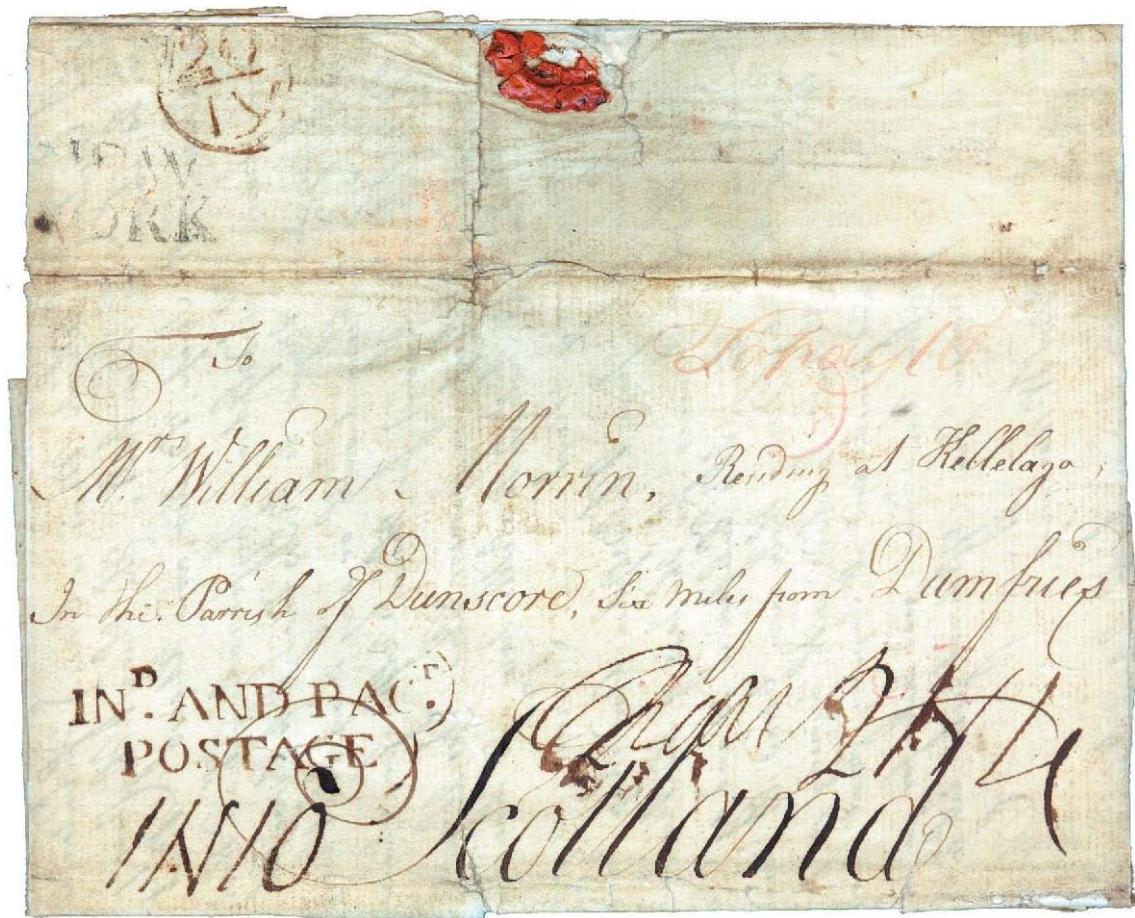 NEW
YORK
To
Mr. William Morrin, Residing at Kellelago,
In the Parrish of Dunscore, Six Miles from Dumfries
IND. AND PACT.
POSTAGE
1N10
Scotland